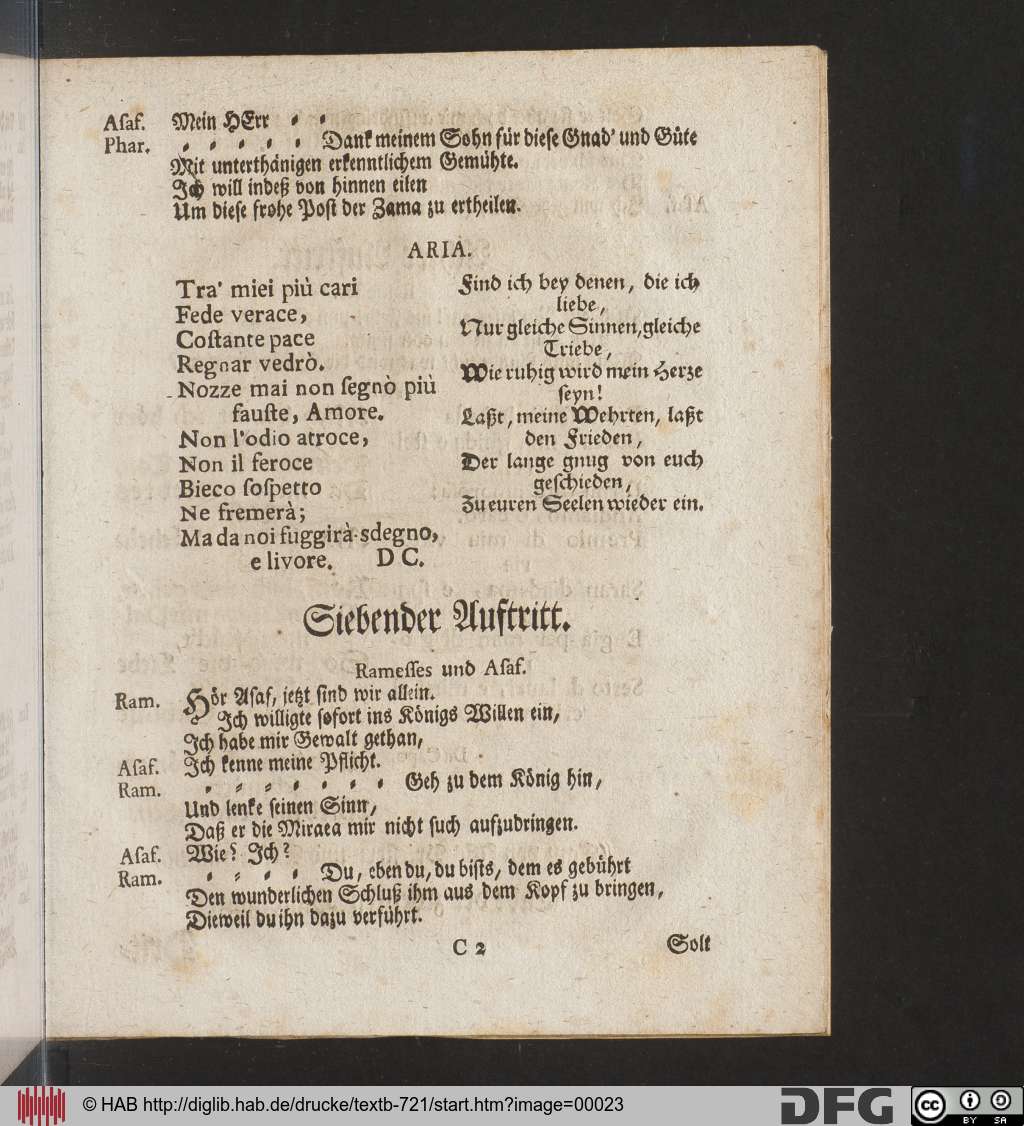 Aſaf. Mein HErr ⸗ ⸗
Phar. ⸗ ⸗ ⸗ ⸗ ⸗ Dank meinem Sohn für dieſe Gnad' und Güte
Mit unterthänigen erkenntlichem Gemühte.
Ich will indeß von hinnen eilen
Um dieſe frohe Poſt der Zama zu ertheilen.
ARIA.
Tra' miei più cari
Fede verace,
Coſtante pace
Regnar vedrò.
Nozze mai non ſegnò più
fauſte, Amore.
Non l'odio atroce,
Non il feroce
Bieco ſoſpetto
Ne fremerà;
Ma da noi fuggirà sdegno,
e livore. D C.
Find ich bey denen, die ich
liebe,
Nur gleiche Sinnen, gleiche
Triebe,
Wie ruhig wird mein Herze
ſeyn!
Laßt, meine Wehrten, laßt
den Frieden,
Der lange gnug von euch
geſchieden,
Zu euren Seelen wieder ein.
Siebender Auftritt.
Rameſſes und Aſaf.
Ram. Hör Aſaf, jetzt ſind wir allein.
Ich willigte ſofort ins Königs Willen ein,
Ich habe mir Gewalt gethan,
Aſaf. Ich kenne meine Pflicht.
Ram. ⸗ ⸗ ⸗ ⸗ ⸗ ⸗ ⸗ Geh zu dem König hin,
Und lenke ſeinen Sinn,
Daß er die Miraea mir nicht ſuch aufzudringen.
Aſaf. Wie? Ich?
Ram. ⸗ ⸗ ⸗ ⸗ Du, eben du, du biſts, dem es gebührt
Den wunderlichen Schluß ihm aus dem Kopf zu bringen,
Dieweil du ihn dazu verführt.
C 2 Solt
© HAB http://diglib.hab.de/drucke/textb-721/start.htm?image=00023
DFG
cc BY SA